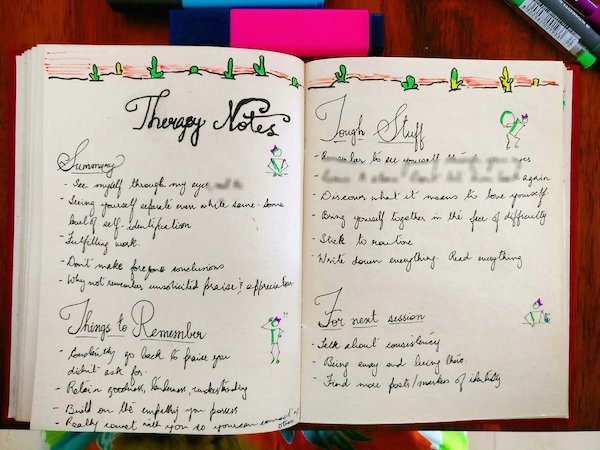 Therapy Notes
Summary
- See myself through my eyes
- Seeing yourself separate even while same. Some
level of self-identification
- Fulfilling work.
- Don't make foregone conclusions
- Why not remember unsolicited praise & appreciation
Things to Remember
- Constantly go back to praise you
didn't ask for.
- Retain goodness, tenderness, understanding
- Build on the empathy you possess
- Really connect with you so you can connect w/
others
Tough Stuff
- Remember to see yourself through your eyes
again
- Discover what it means to love yourself.
- Bring yourself together in the face of difficulty
- Stick to routine
- Write down everything. Read everything
For next session
- Talk about consistency
- Being away and being there.
- Find more posts/markers of identity